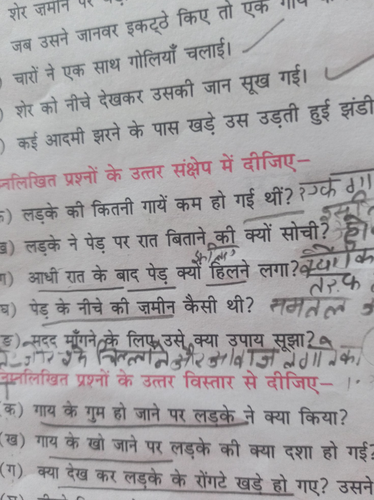 शेर ज़मीन पर
जब उसने जानवर इकट्ठे किए तो एक गाय
चारों ने एक साथ गोलियाँ चलाईं।
शेर को नीचे देखकर उसकी जान सूख गई।
कई आदमी झरने के पास खड़े उस उड़ती हुई झंडी
नलिखित प्रश्नों के उत्तर संक्षेप में दीजिए–
क) लड़के की कितनी गायें कम हो गई थीं? एक गाय
ख) लड़के ने पेड़ पर रात बिताने की क्यों सोची?
ग) आधी रात के बाद पेड़ क्यों हिलने लगा? क्योंकि
तरफ
घ) पेड़ के नीचे की ज़मीन कैसी थी? समतल
ङ) मदद माँगने के लिए उसे क्या उपाय सूझा?
जोर से चिल्लाने और आवाज लगाने का
निम्नलिखित प्रश्नों के उत्तर विस्तार से दीजिए–
(क) गाय के गुम हो जाने पर लड़के ने क्या किया?
(ख) गाय के खो जाने पर लड़के की क्या दशा हो गई?
(ग) क्या देख कर लड़के के रोंगटे खड़े हो गए? उसने